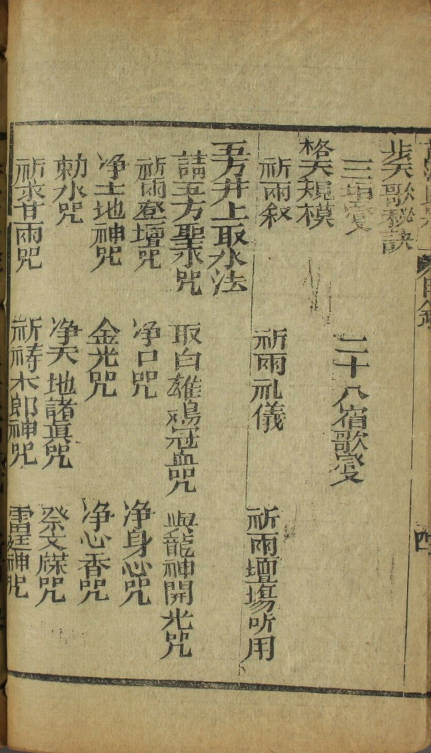 步天歌秘訣
三垣變　二十八宿歌變
格天規模
祈雨叙　祈雨礼儀　祈雨壇塲所用
五方井上取水法
請五方聖水咒　取白雄鷄冠血咒　與龍神開光咒
祈雨登壇咒　净口咒　净身心咒
净土地神咒　金光咒　净心香咒
勅水咒　净天地諸真咒　祭文牒咒
祈求甘雨咒　祈祷木郎神咒　雷神咒